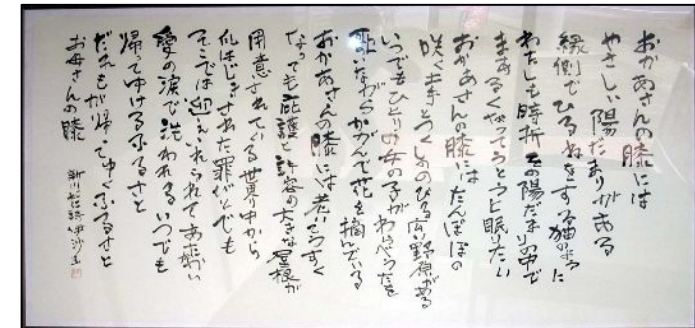 おかあさんの膝には
やさしい陽だまりがある
縁側でひるねをする猫のように
わたしも時折その陽だまりの中で
まあるくなってうとうと眠りたい
おかあさんの膝にはたんぽぽの
咲く土手とつくしののびる広い野原がある
いつでもひとりの女の子がわらべうたを
歌いながらかがんで花を摘んでいる
おかあさんの膝には老いてうすく
なっても庇護と許容の大きな屋根が
用意されている世界中から
爪はじきされた罪びとでも
そこでは迎えいれられてあたたかい
愛の涙で洗われるいつでも
帰ってゆけるふるさと
だれもが帰ってゆくふるさと
お母さんの膝
新川和江詩